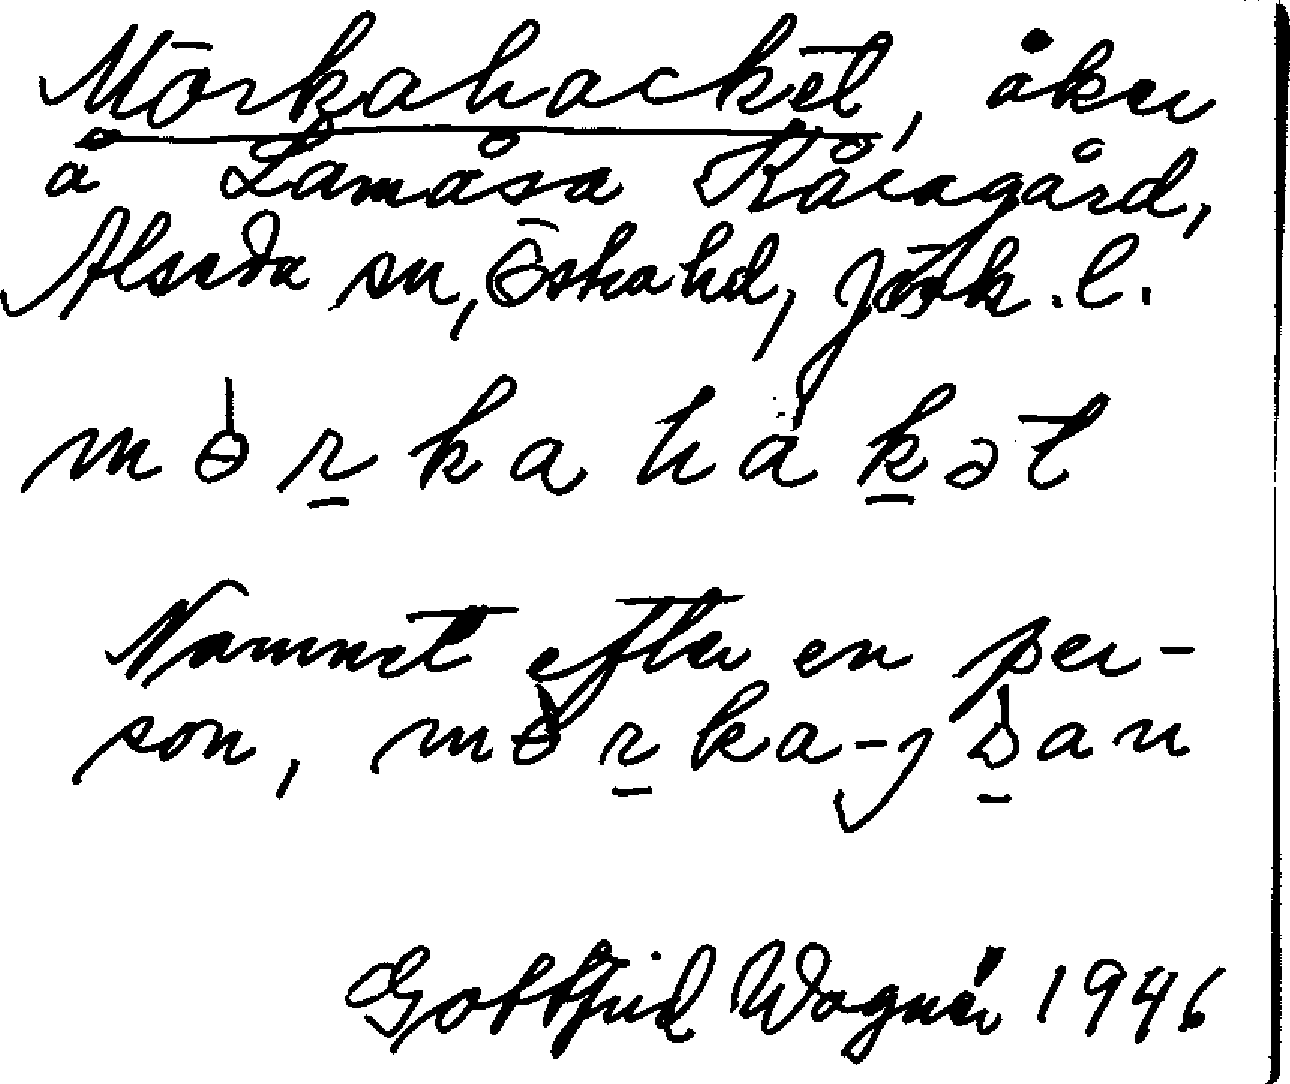 Mörkahacket, åker
å Lamåsa Råsagård,
Alseda sn, Östra hd, Jönk. l.
mörka håkət
Namnet efter en per-
son, mörka-jòan
Gottfrid Wagnér 1946